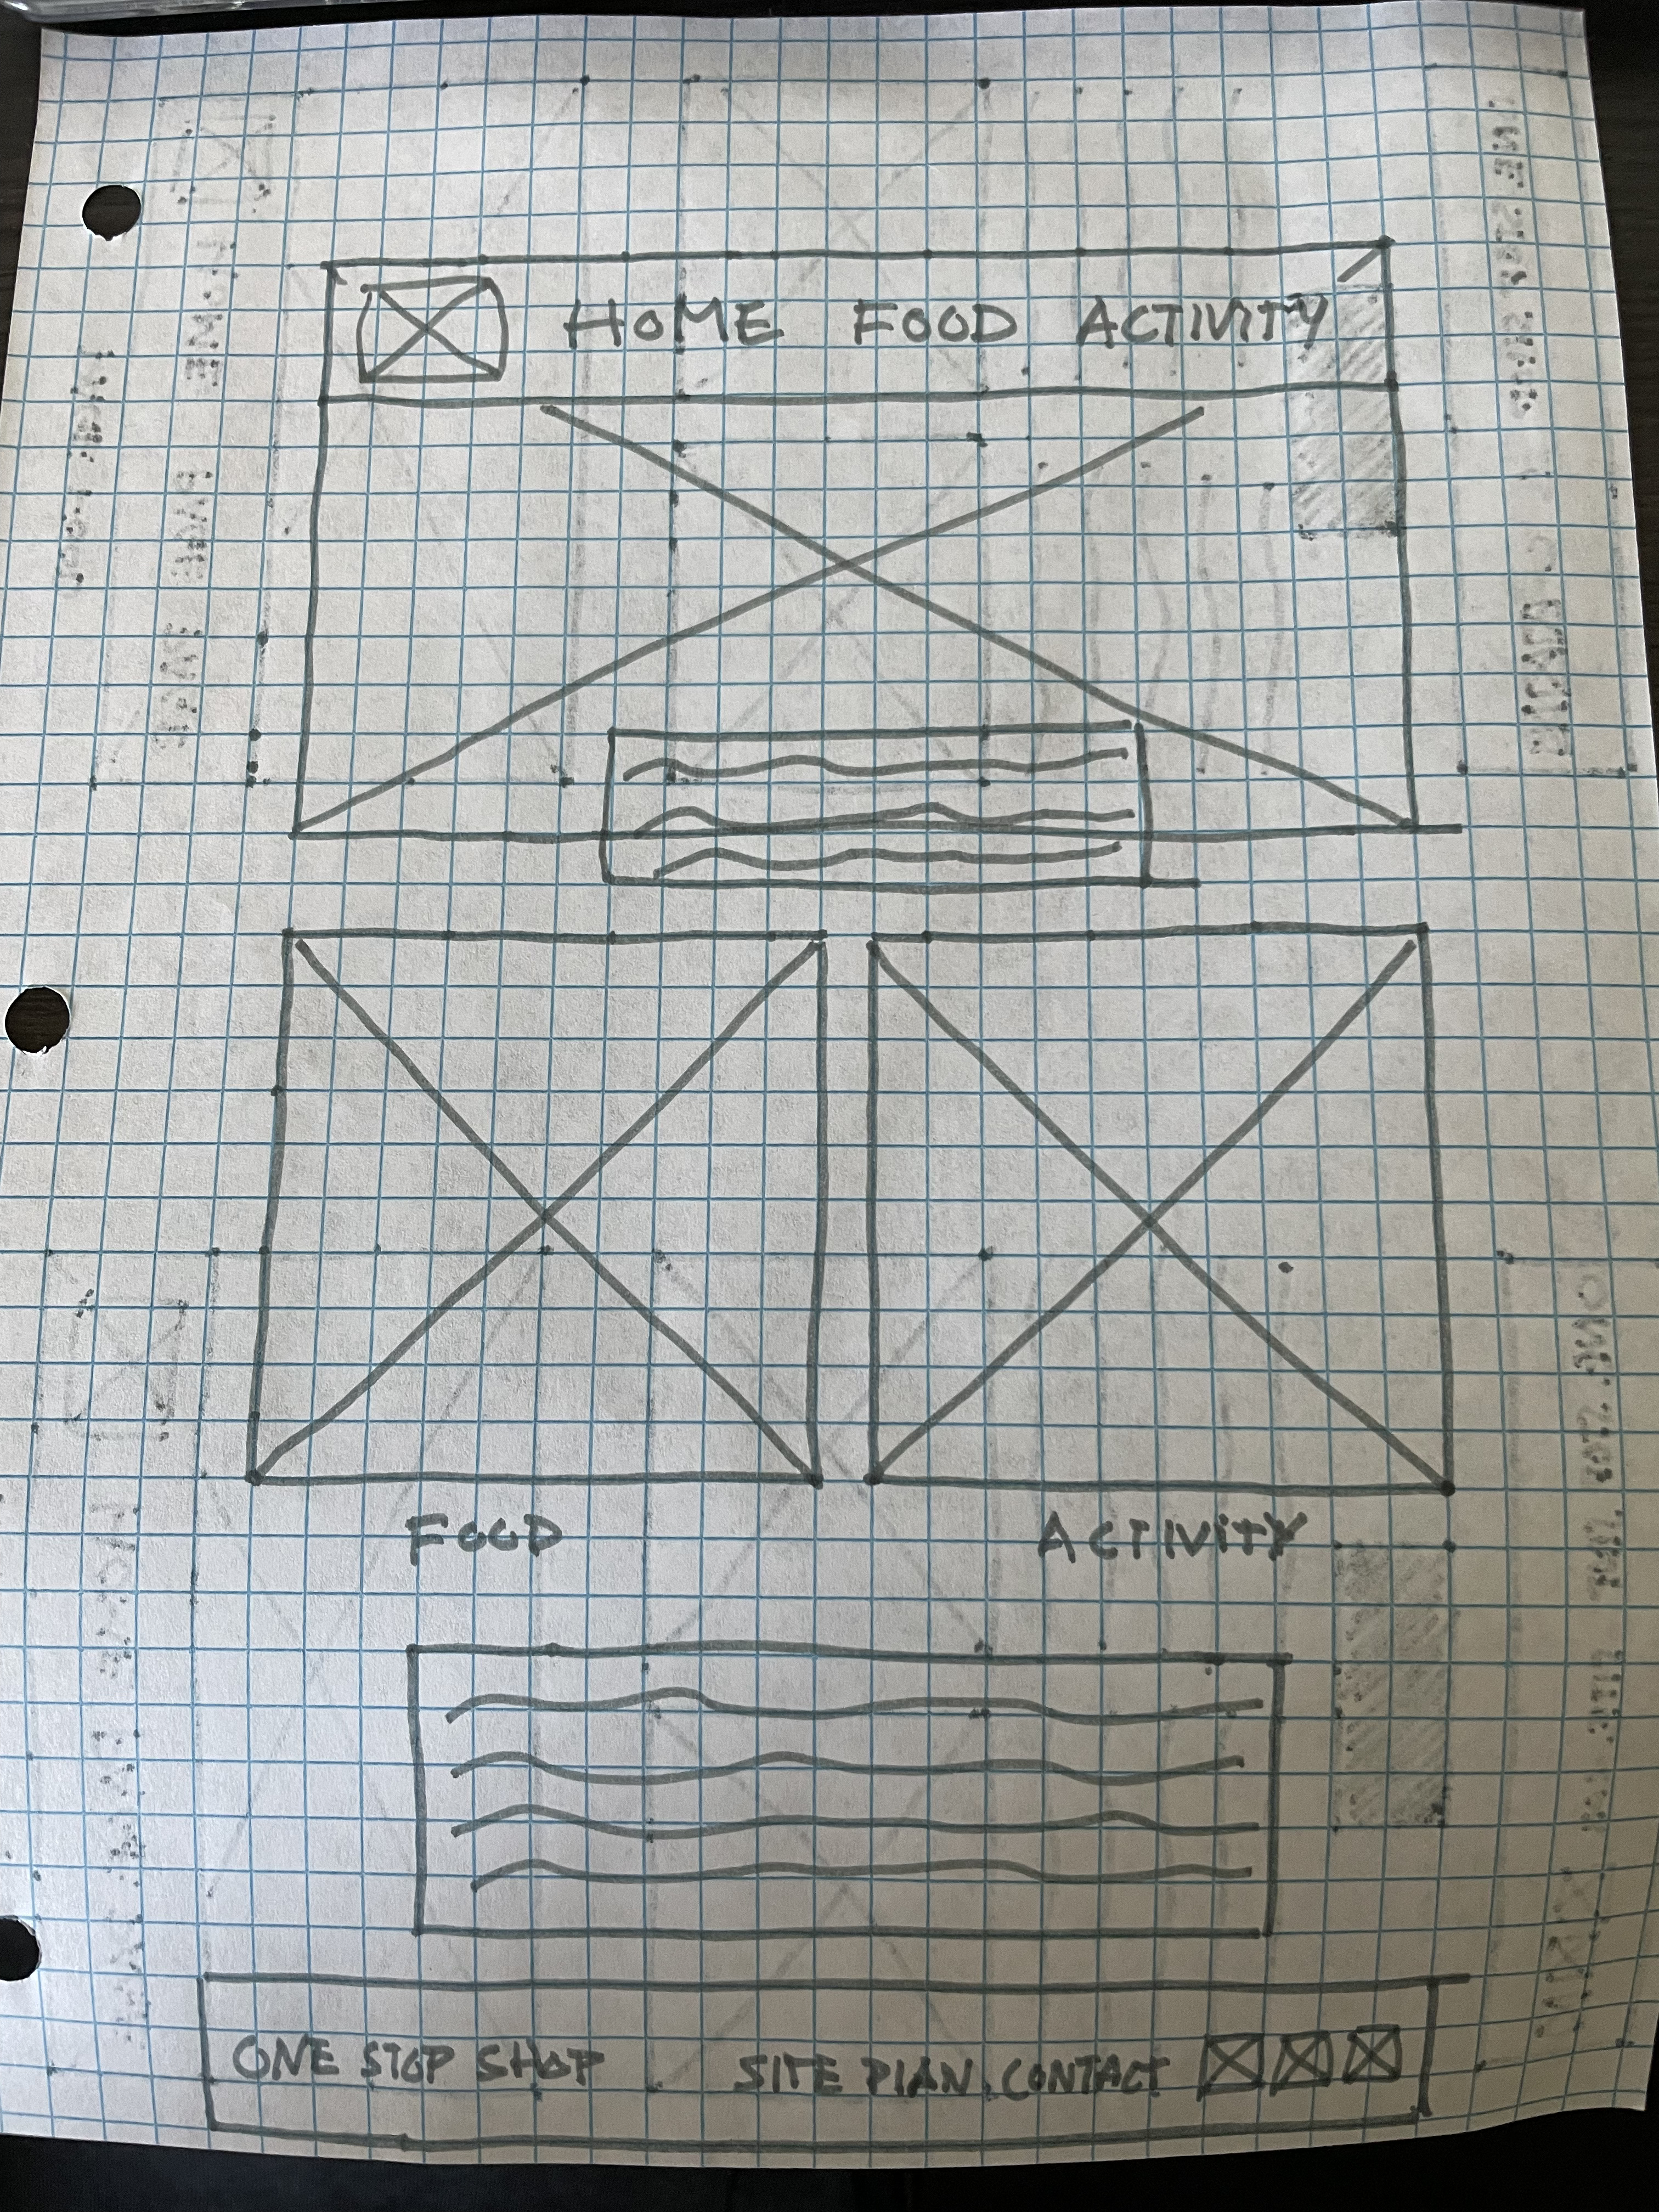 HOME FOOD ACTIVITY
FOOD ACTIVITY
ONE STOP SHOP SITE PLAN CONTACT